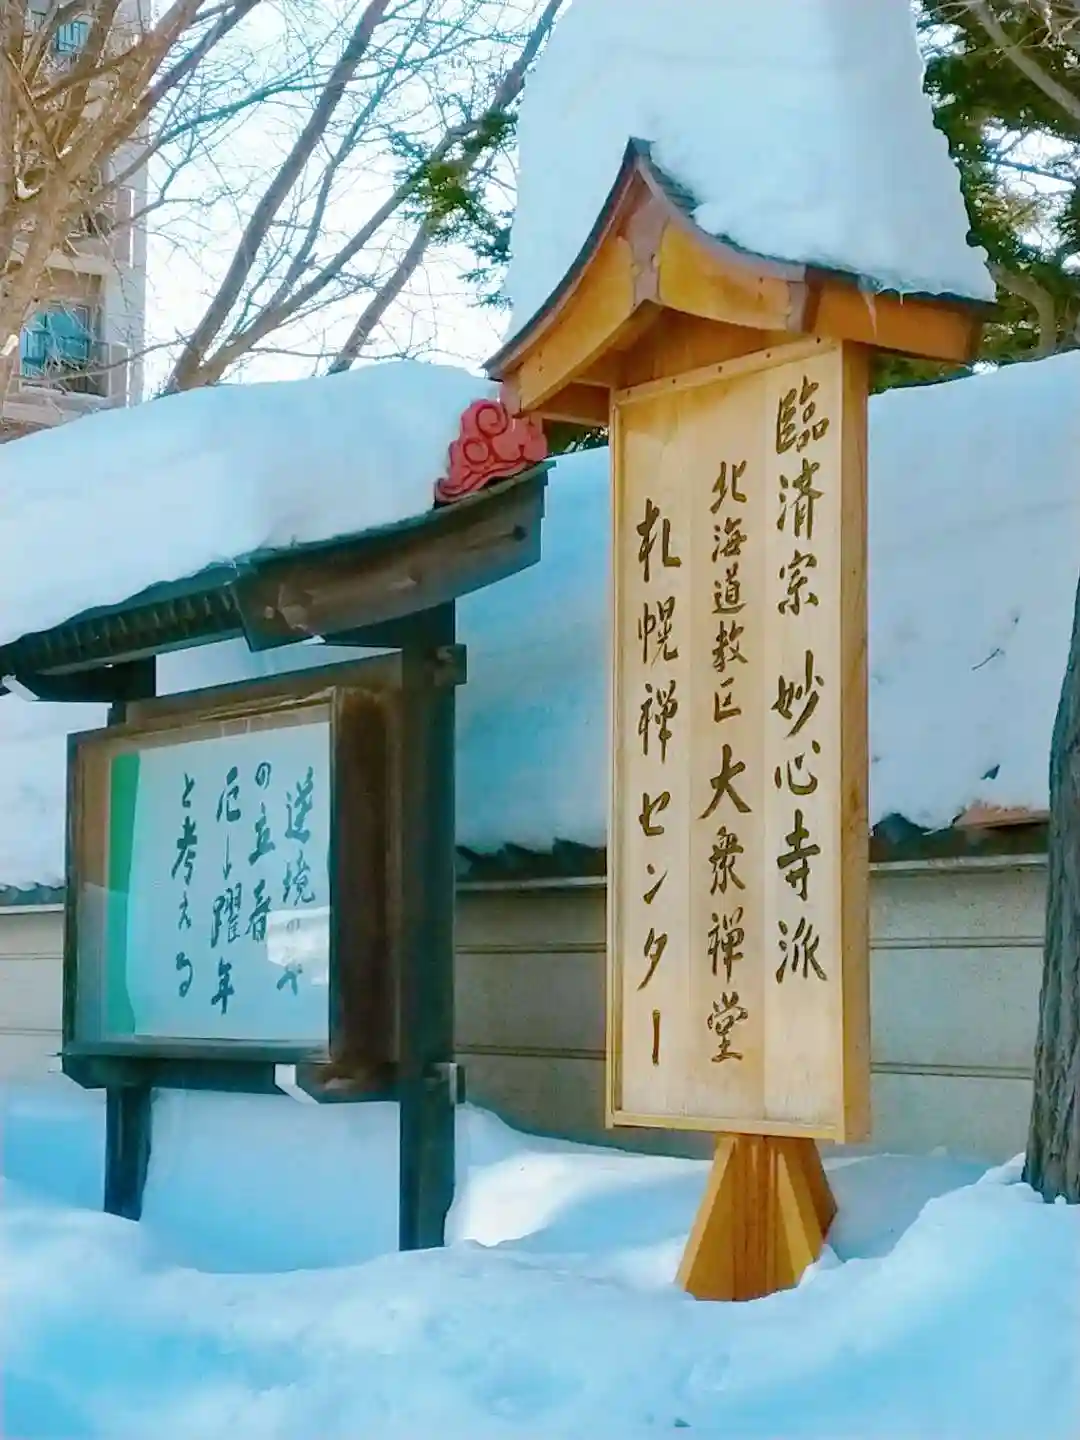 臨済宗 妙心寺派
北海道教区 大衆禅堂
札幌禅センター
逆境
の立春
厄し躍年
と考える